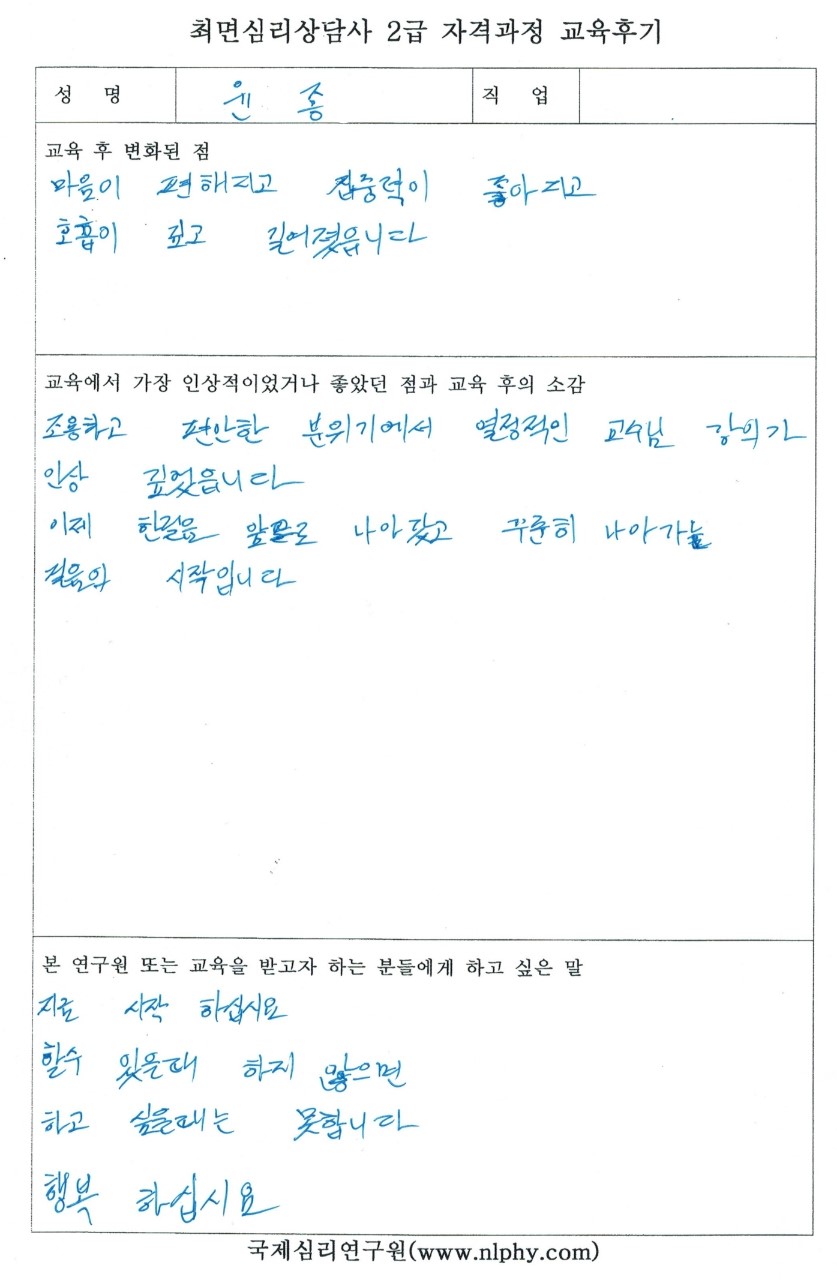 최면심리상담사 2급 자격과정 교육후기
성 명 윤 종 직 업
교육 후 변화된 점
마음이 편해지고 집중력이 좋아지고
호흡이 깊고 길어졌읍니다
교육에서 가장 인상적이었거나 좋았던 점과 교육 후의 소감
조용하고 편안한 분위기에서 열정적인 교수님 강의가
인상 깊었읍니다
이제 한걸음 앞으로 나아갔고 꾸준히 나아가는
걸음의 시작입니다
본 연구원 또는 교육을 받고자 하는 분들에게 하고 싶은 말
지금 시작 하십시요
할수 있을때 하지 않으면
하고 싶을때는 못합니다
행복 하십시요
국제심리연구원(www.nlphy.com)